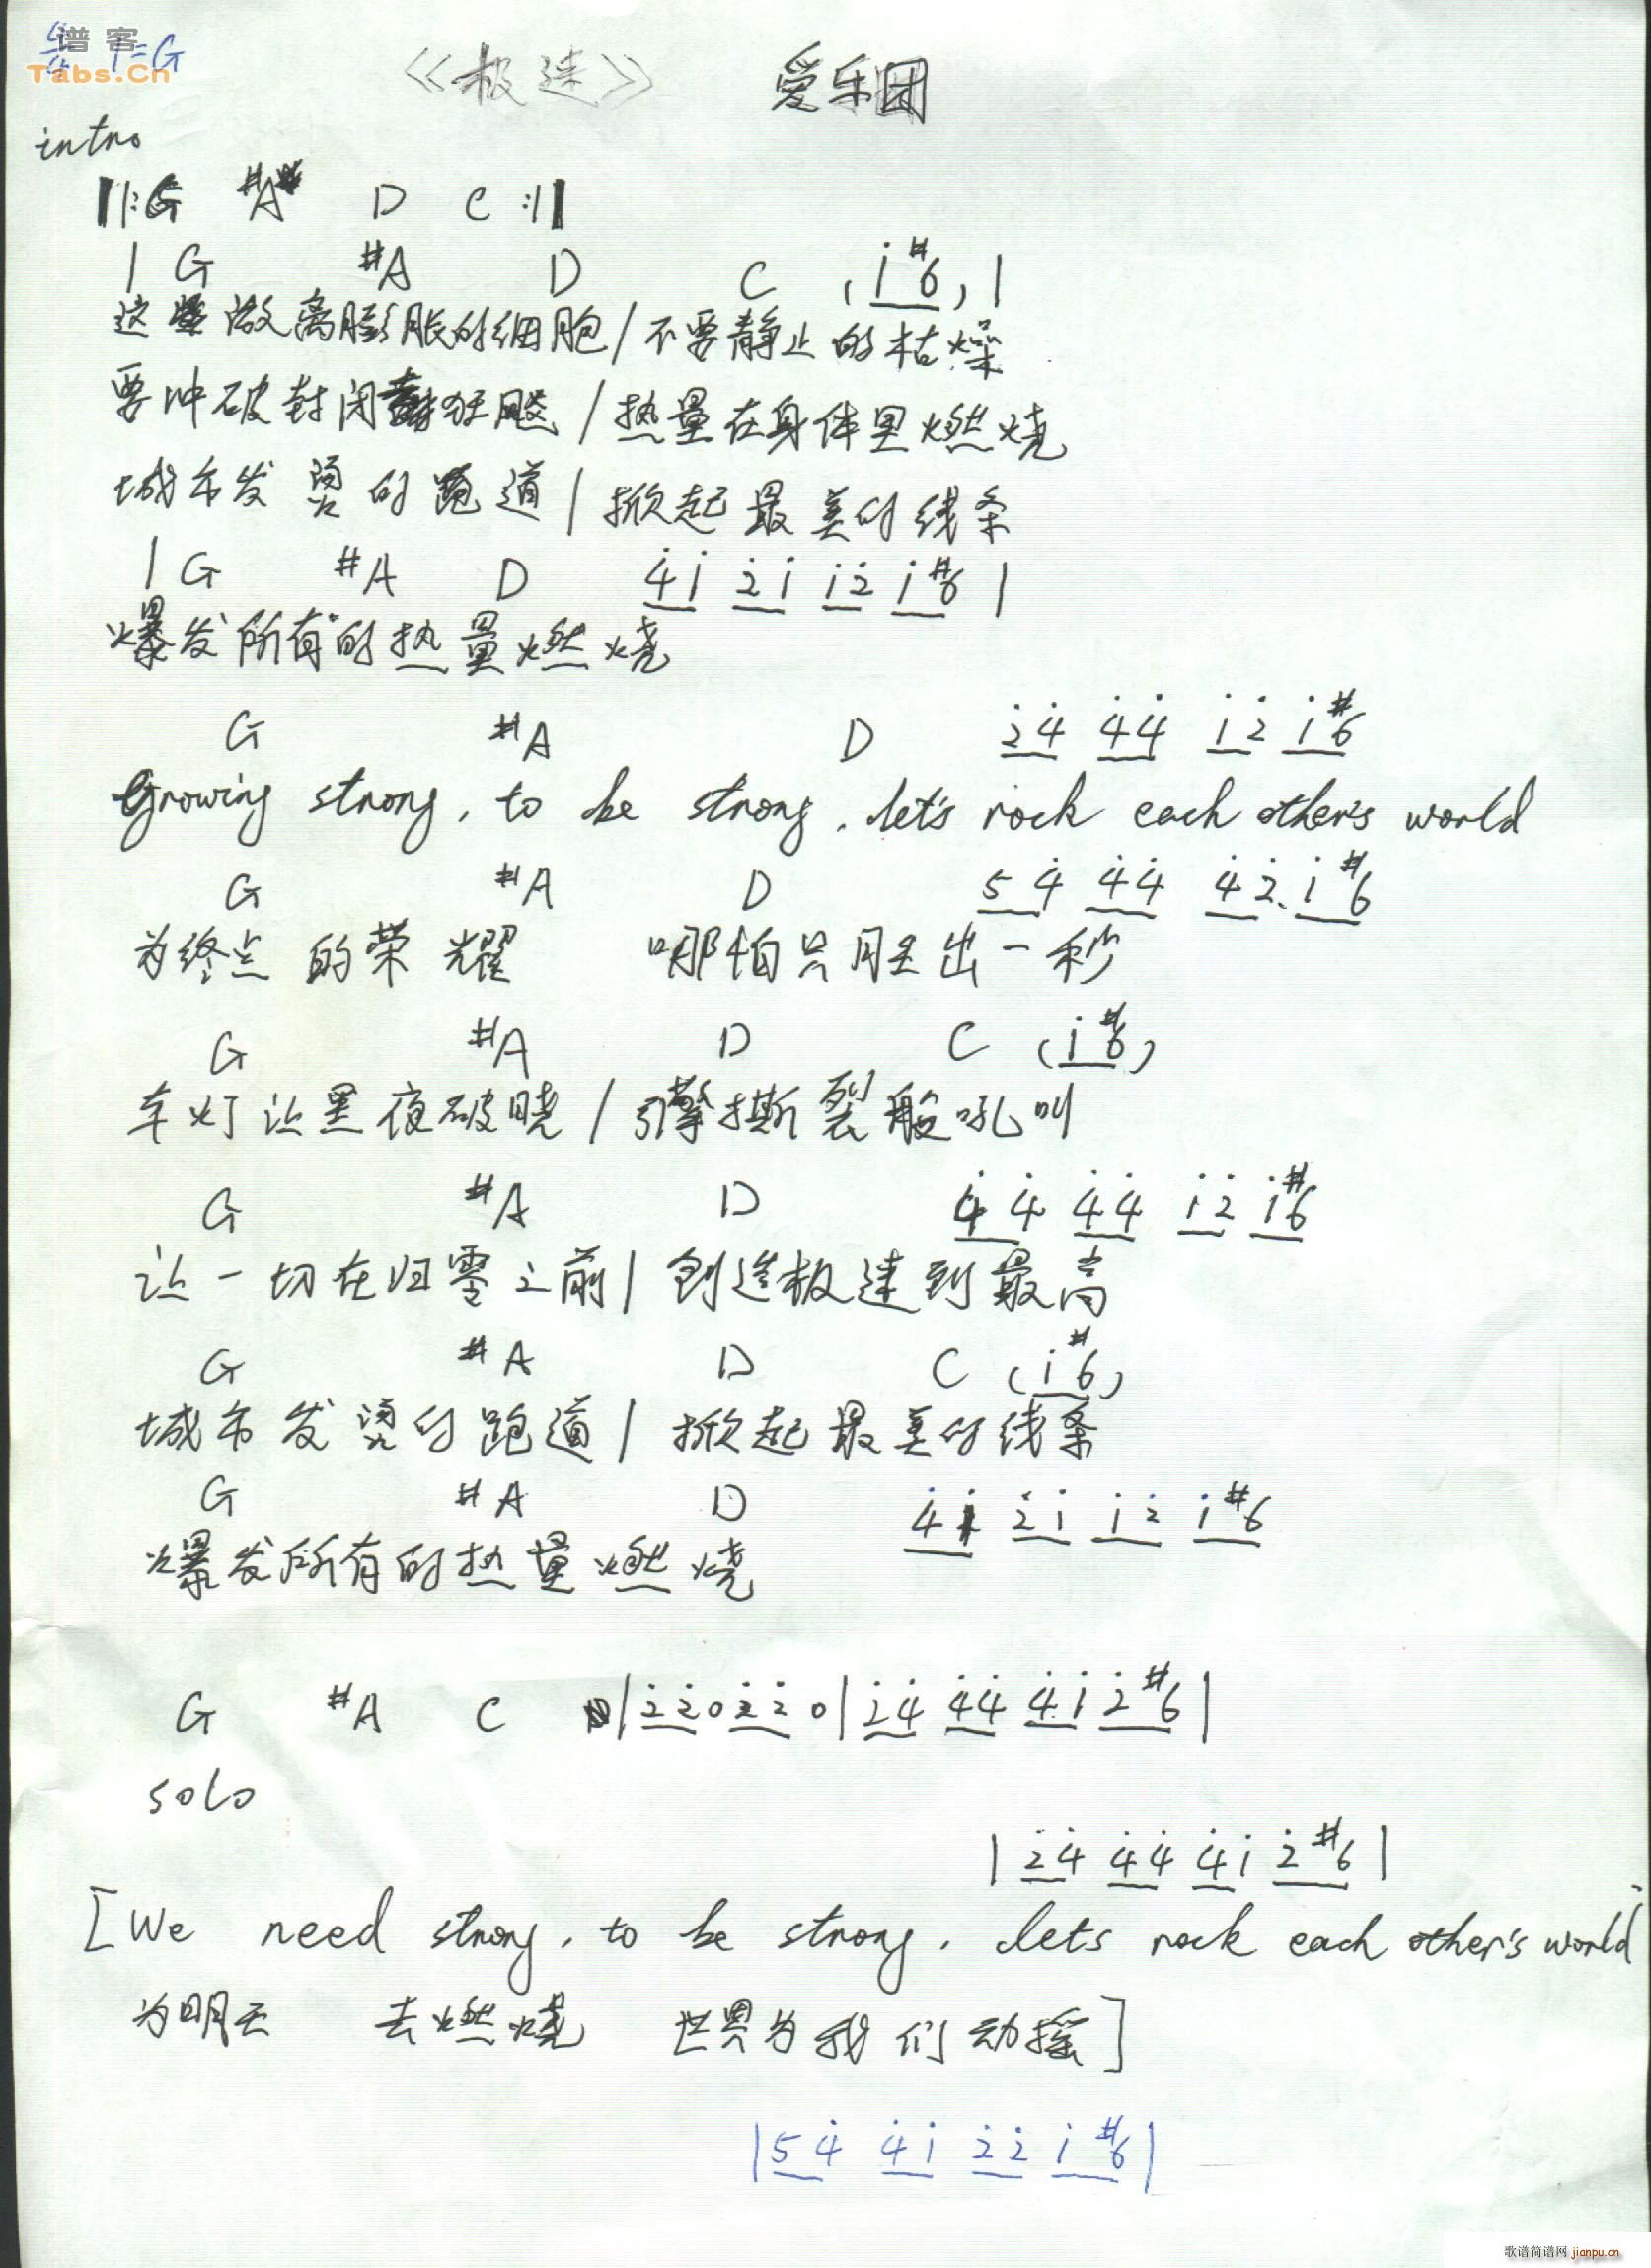 谱客 4/4 1=G
Tabs.Cn
《极速》 爱乐团
intro
‖: G #A D C :‖
| G #A D C (i #6) |
这 做离膨胀的细胞/不要静止的枯燥
要冲破封闭 狂飚/热量在身体里燃烧
城市发烫的跑道/掀起最美的线条
| G #A D 4i 2i i2 i#6 |
爆发所有的热量燃烧
G #A D 24 44 i2 i#6
Growing strong, to be strong, let's rock each other's world
G #A D 54 44 42 i#6
为终点的荣耀 哪怕只胜出一秒
G #A D C (i#6)
车灯让黑夜破晓/引擎撕裂般吼叫
G #A D 44 44 i2 i#6
让一切在归零之前/创造极速到最高
G #A D C (i#6)
城市发烫的跑道/掀起最美的线条
G #A D 4i 2i i2 i#6
爆发所有的热量燃烧
G #A C |220220|24 44 4i 2#6|
solo
|24 44 4i 2#6|
[We need strong, to be strong, lets rock each other's world
为明天 去燃烧 世界为我们动摇]
|54 4i 22 i#6|
歌谱简谱网 jianpu.cn